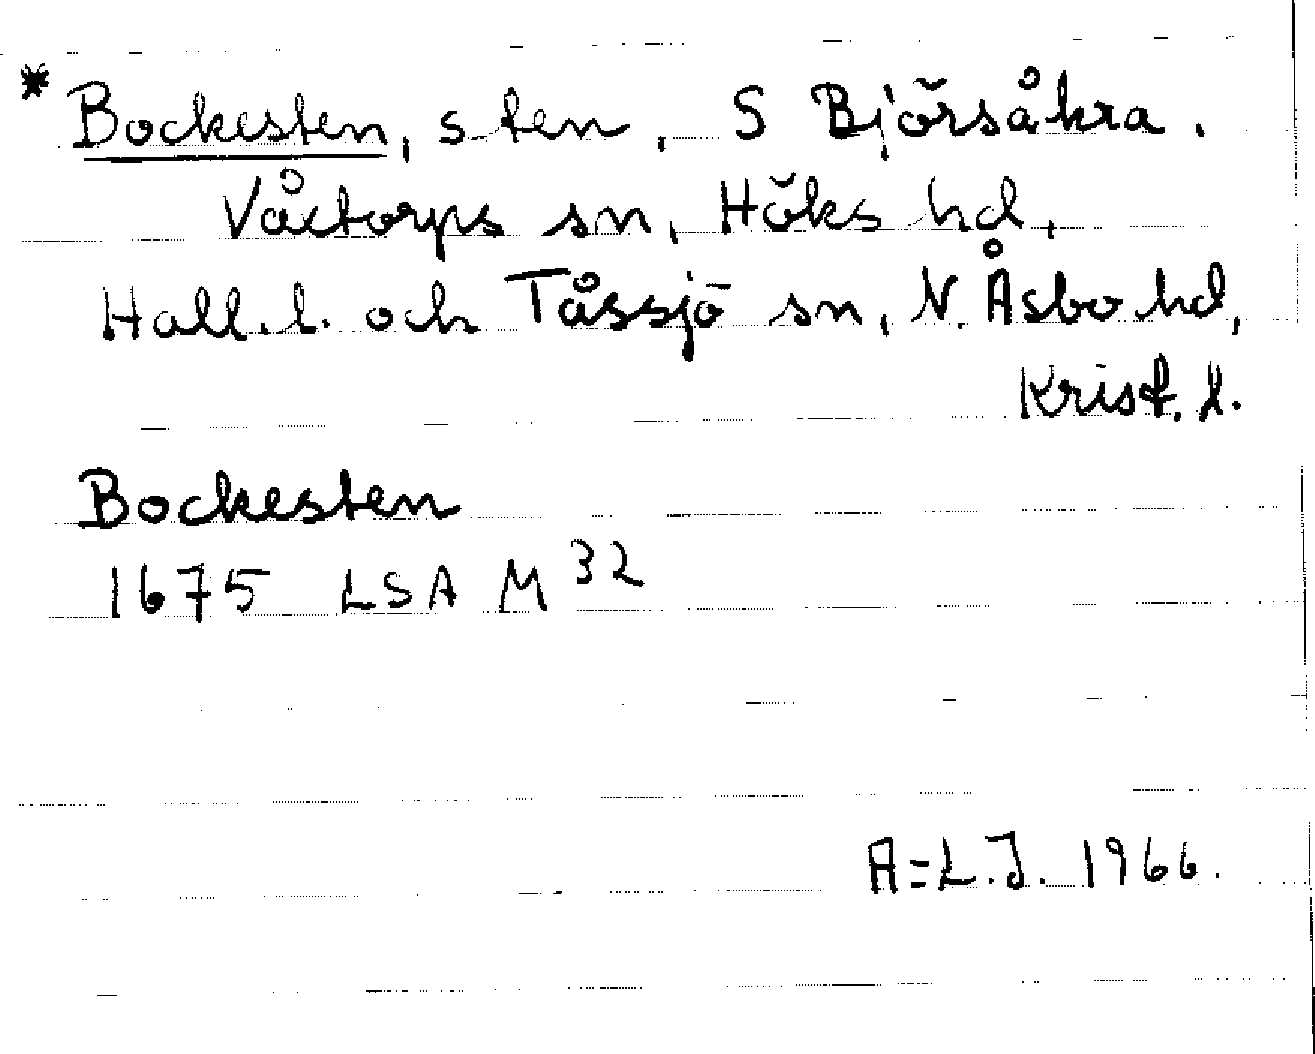 * Bockesten, sten, S Björsåkra.
Våxtorps sn, Höks hd,
Hall. l. och Tåssjö sn, N. Åsbo hd,
Krist. l.
Bockesten
1675 LSA M 32
A=L.J. 1966.